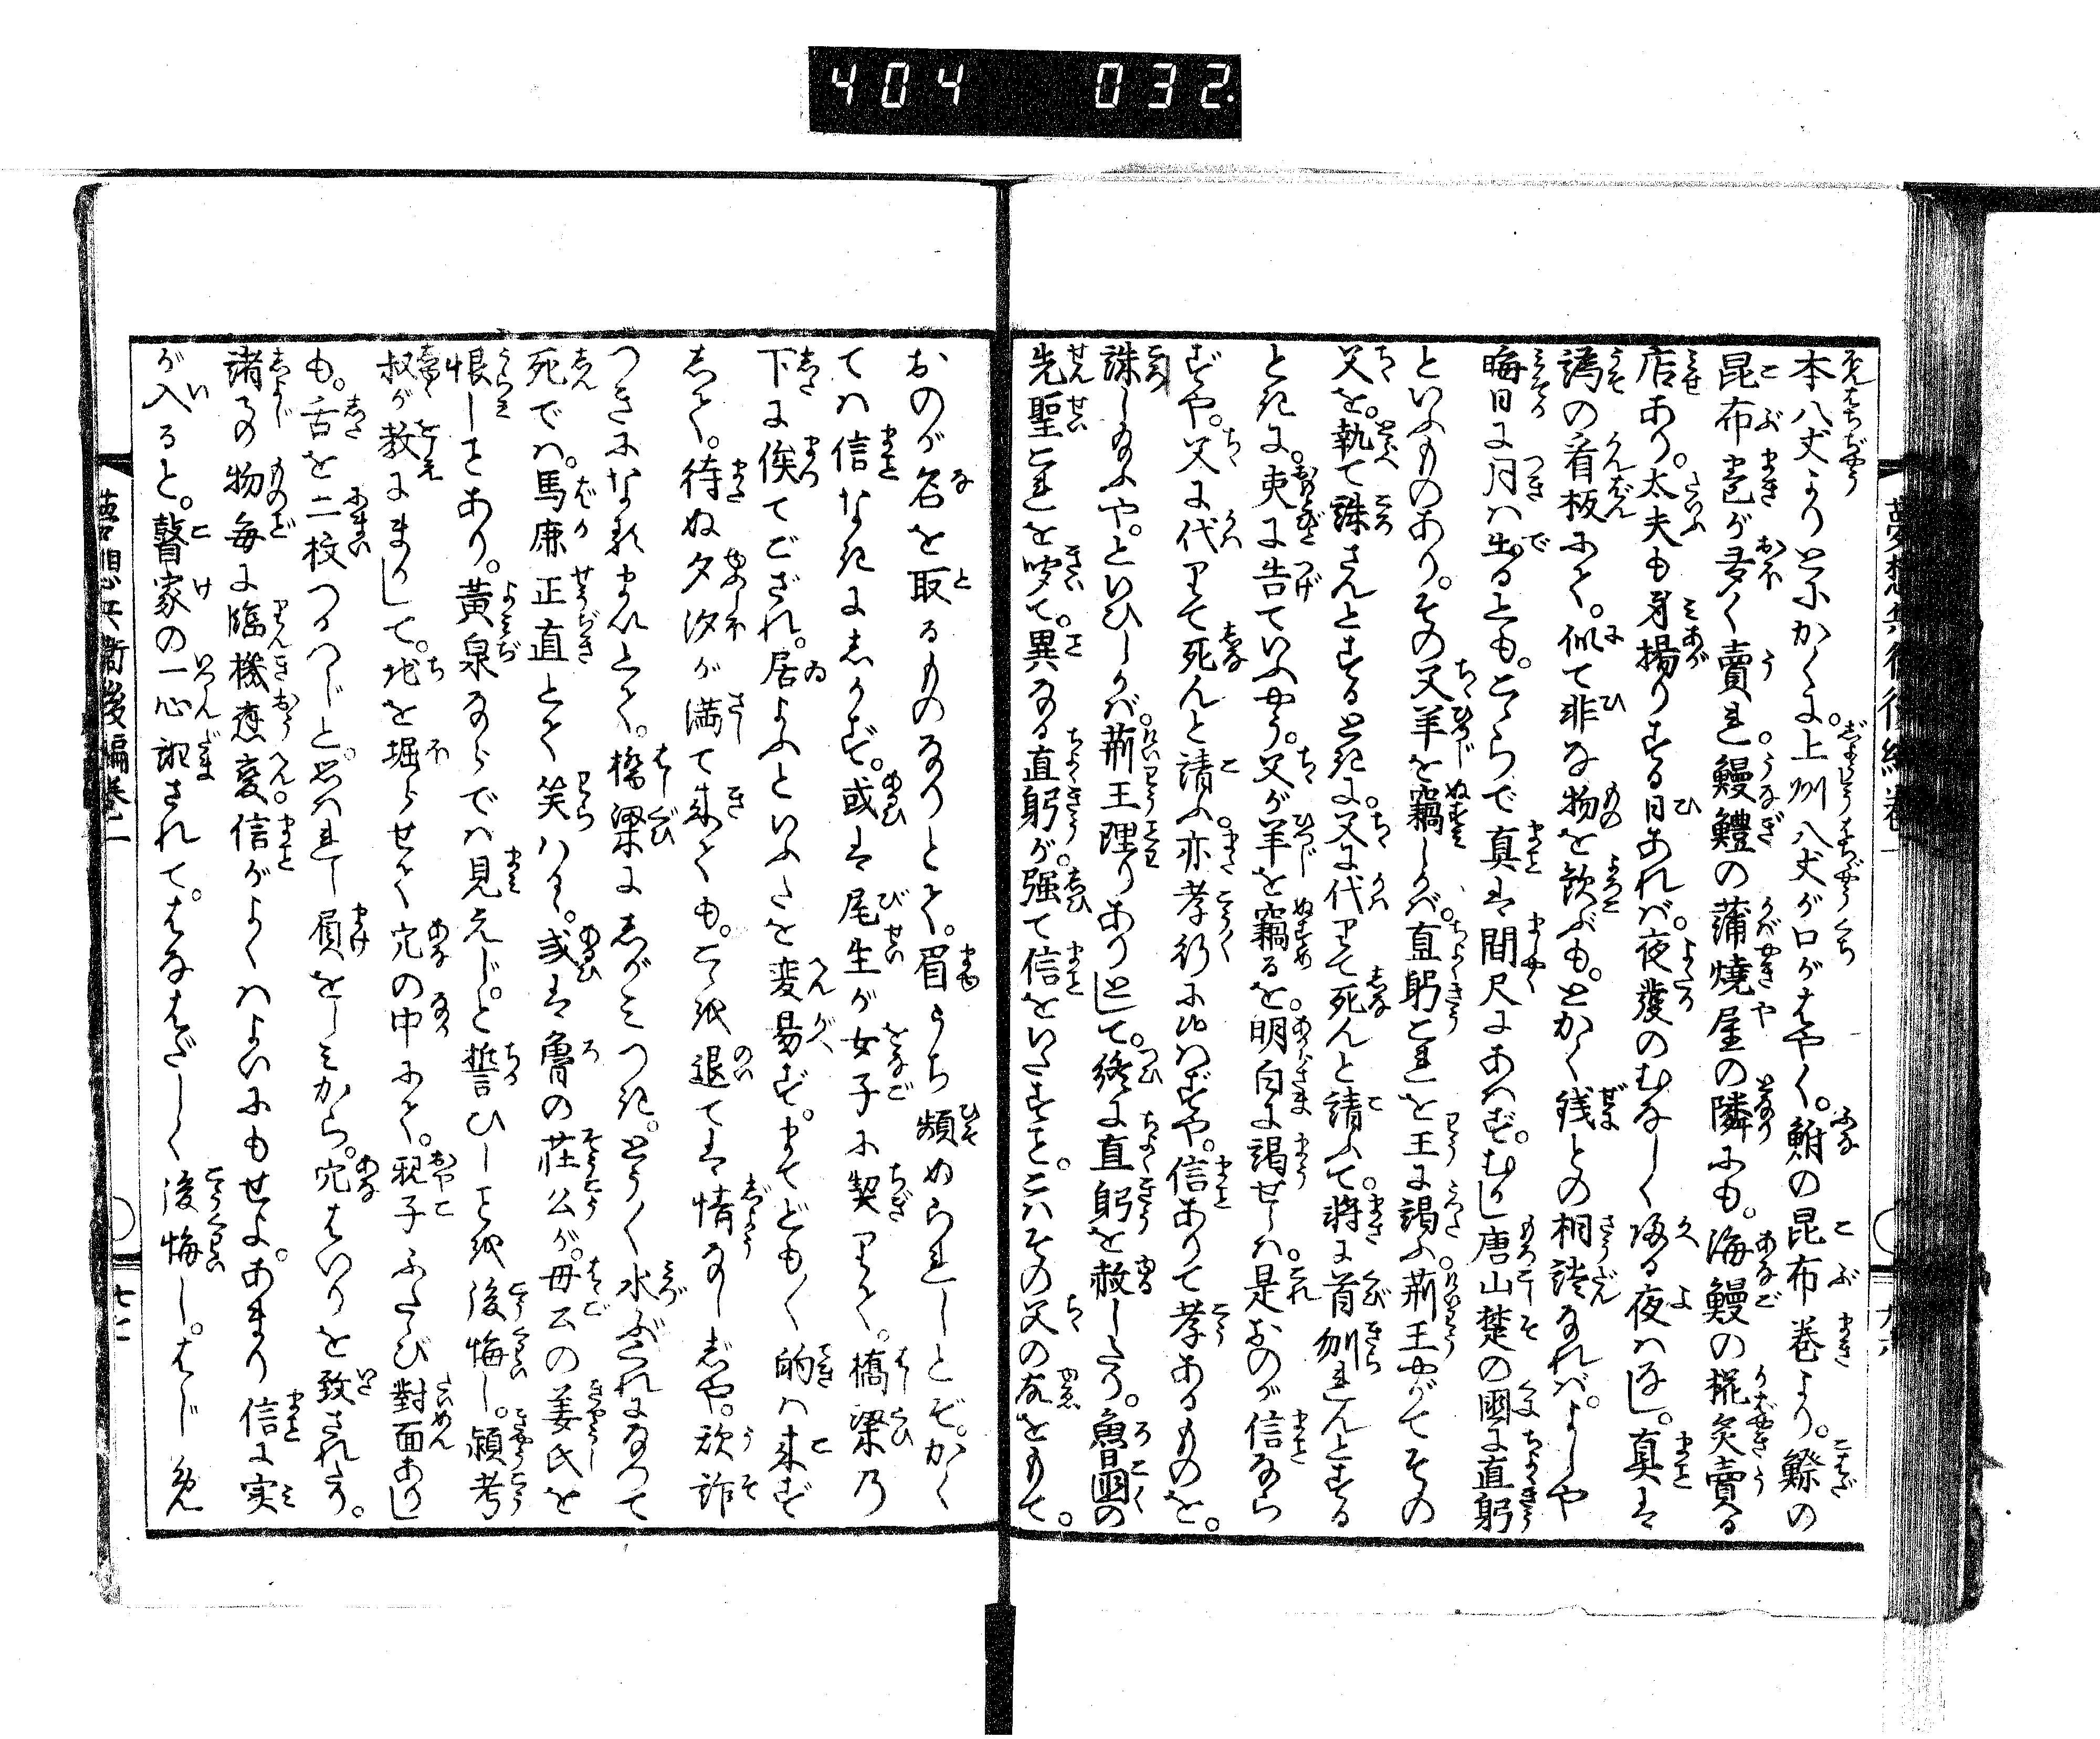 404 032.
本八丈よりとにかくに。上州八丈が口がはやく。鮒の昆布巻より。鰶の
昆布巻が多く賣れ。鰻鱧の蒲燒屋の隣にも。海鰻の椛炙賣る
店あり。太夫も身揚りする日あれば。夜發のむなしく帰る夜はなし。真は
譌の看板にて。似て非な物を歓ぶも。とかく銭との相談なれば。よしや
晦日に月は出るとも。こゝらで真は間尺にあはず。むかし唐山楚の國に直躬
といふものあり。その父羊を竊しかば。直躬これを王に謁ふ。荊王やがてその
父を。執て誅さんとするときに。父に代りて死んと請ふて。将に首刎れんとする
ときに。吏に告ていふやう。父が羊を竊るを。明白に謁せしは。是おのが信なら
ずや。父に代りて死んと請ふ。亦孝行にあらずや。信ありて孝あるものを。
誅し給ふや。といひしかば。荊王理りありとして。終に直躬を赦したり。魯國の
先聖これを咲て。異なる直躬が。強て信をいたすこと。こはその父の故をもて。
おのが名を取るものなりとて。眉うち顰められしとぞ。かく
ては信なきにしかず。或は尾生が女子に契りて。橋梁乃
下に俟てござれ。居よふといふたを変易ず。まてども〳〵的は来ず
して。待ぬ夕汐が満て来ても。こゝを退ては情なしじや。欺詐
つきになるまいとて。橋梁にしがみつき。とう〳〵水ぶくれになつて
死では。馬廉正直とて笑はる。或は魯の荘公が。母公の姜氏を
恨しことあり。黄泉ならでは見えじ。と誓ひしことを後悔し。潁考
叔が教にまかして。地を堀らせて穴の中にて。親子ふたゝび對面ありし
も。舌を二枚つかはじと。思はれて負をしみから。穴はいりを致されたり。
諸事の物毎に臨機應変。信がよくはよいにもせよ。あまり信に実
が入ると。瞽家の一心記されて。はなはだしく後悔し。はじ免
夢想兵衛後編巻二
七七